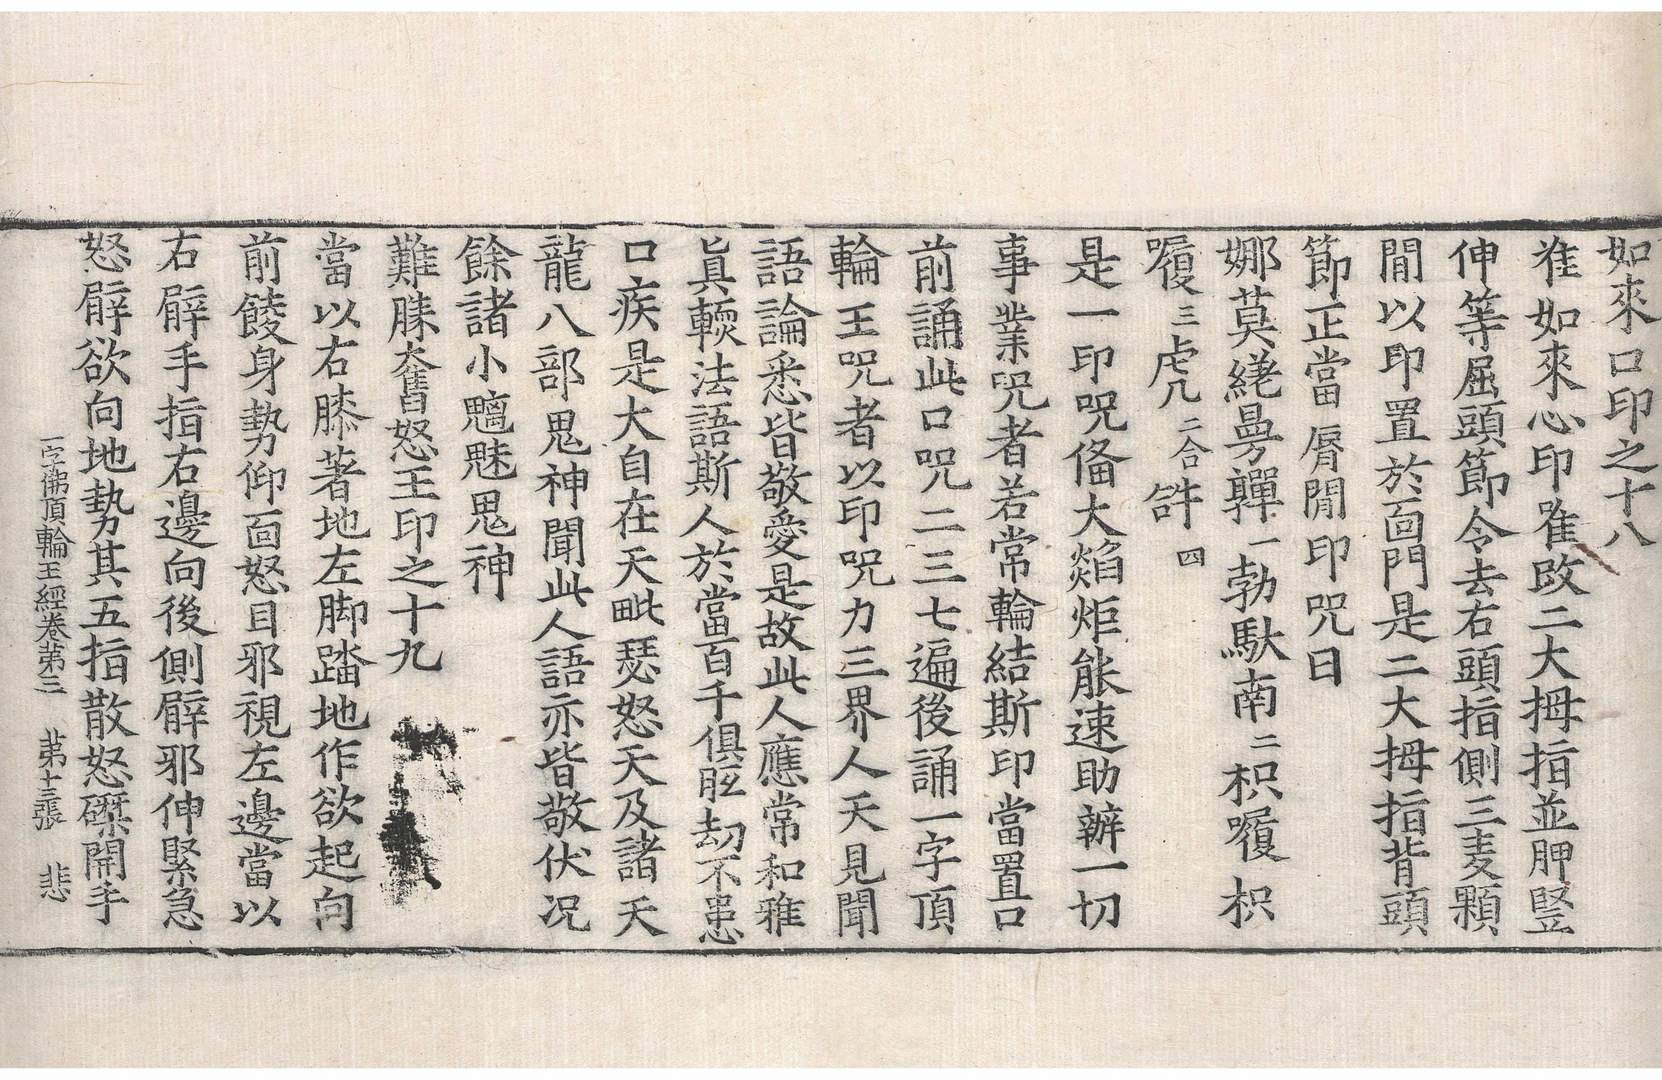 如來口印之十八
准如來心印唯改二大拇指並胛豎
伸等屈頭節令去右頭指側三麦顆
閒以印置於面門是二大拇指背頭
節正當脣閒印呪曰
娜莫繞曼亸一勃馱南二枳㘑枳
㘑三虎二合𤙖四
是一印呪俻大焰炬能速助辦一切
事業呪者若常輪結斯印當置口
前誦此口呪二三七遍後誦一字頂
輪王呪者以印呪力三界人天見聞
語論悉皆敬愛是故此人應常和雅
眞輭法語斯人於當百千俱胝劫不患
口疾是大自在天毗瑟怒天及諸天
龍八部鬼神聞此人語亦皆敬伏况
餘諸小魑魅鬼神
難勝奮怒王印之十九
當以右膝著地左脚踏地作欲起向
前餕身勢仰面怒目邪視左邊當以
右臂手指右邊向後側臂邪伸緊急
怒臂欲向地勢其五指散怒磔開手
一字佛頂輪王經卷第三　第十三張　悲